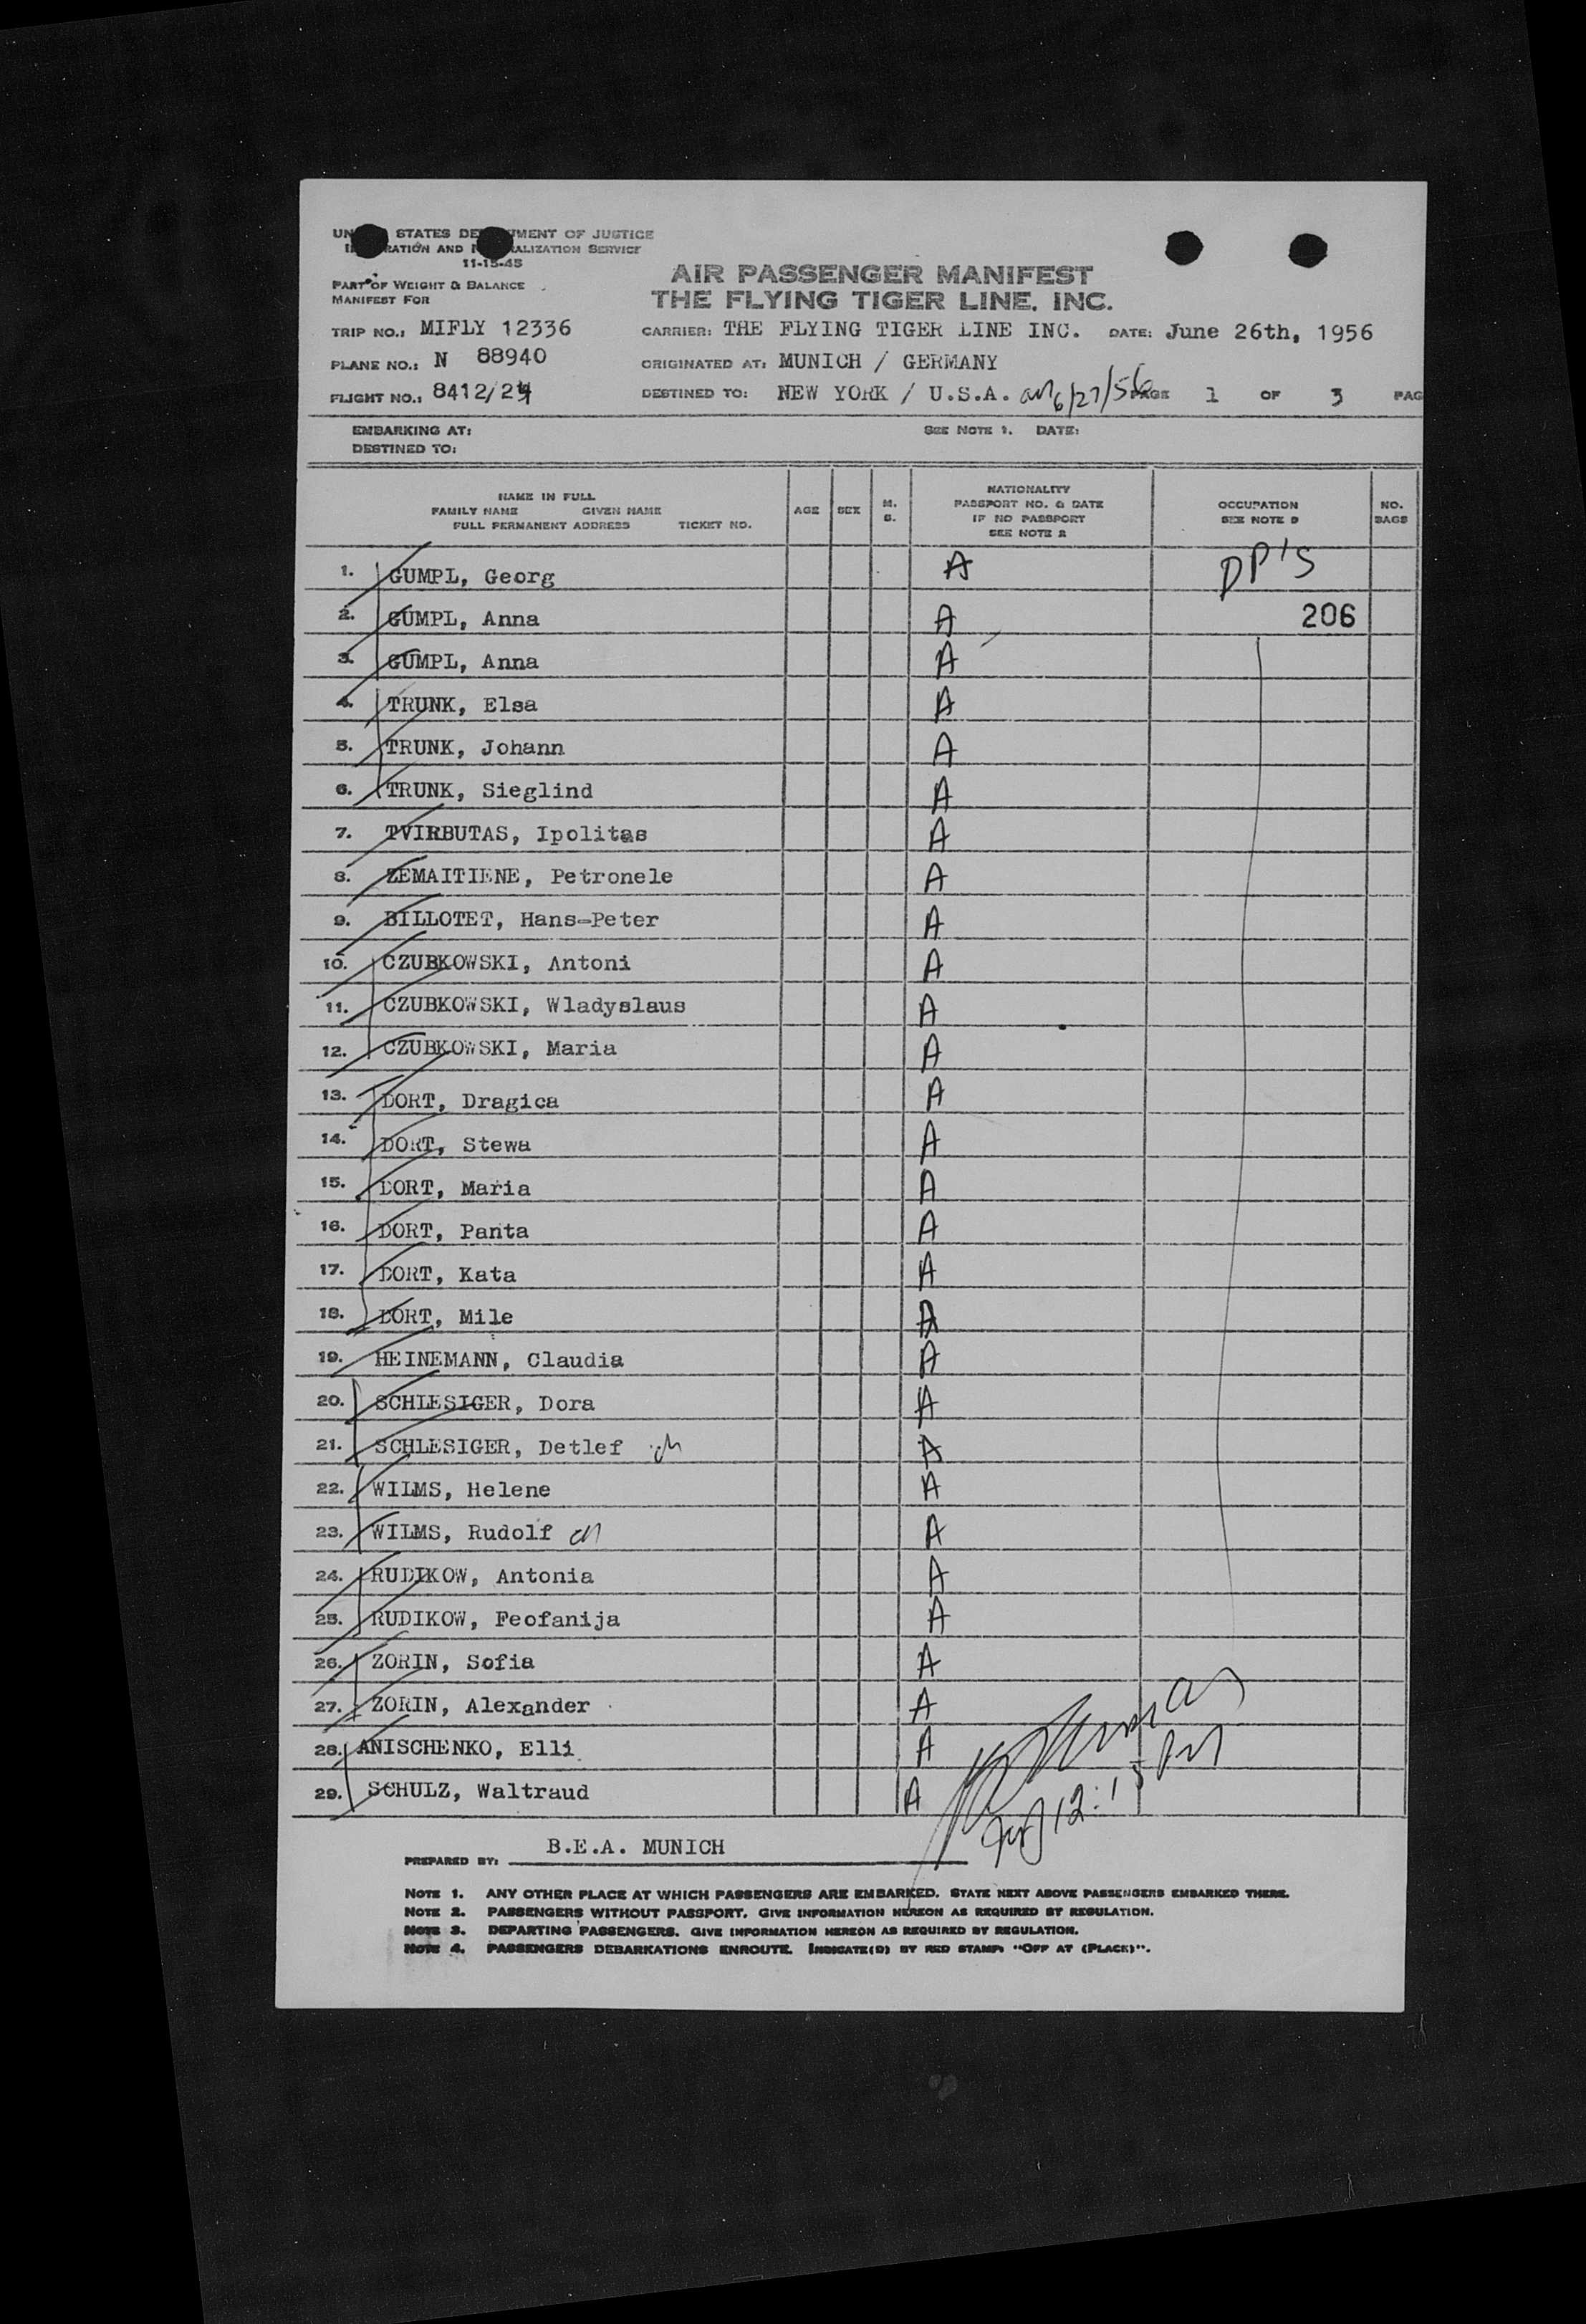 UN STATES DE MENT OF JUSTICE
I RATION AND N ALIZATION SERVICE
11-15-45
PART OF WEIGHT & BALANCE
MANIFEST FOR
AIR PASSENGER MANIFEST
THE FLYING TIGER LINE, INC.
TRIP NO.: MIFLY 12336 CARRIER: THE FLYING TIGER LINE INC. DATE: June 26th, 1956
PLANE NO.: N 88940 ORIGINATED AT: MUNICH / GERMANY
FLIGHT NO.: 8412/24 DESTINED TO: NEW YORK / U.S.A. arr 6/27/56 PAGE 1 OF 3 PAG
EMBARKING AT: SEE NOTE 1. DATE:
DESTINED TO:
NAME IN FULL
FAMILY NAME GIVEN NAME
FULL PERMANENT ADDRESS TICKET NO.
AGE SEX M. S.
NATIONALITY
PASSPORT NO. & DATE
IF NO PASSPORT
SEE NOTE 2
OCCUPATION
SEE NOTE 3
NO.
BAGS
1. GUMPL, Georg A DP'S
2. GUMPL, Anna A 206
3. GUMPL, Anna A
4. TRUNK, Elsa A
5. TRUNK, Johann A
6. TRUNK, Sieglind A
7. TVIRBUTAS, Ipolitas A
8. ZEMAITIENE, Petronele A
9. BILLOTET, Hans-Peter A
10. CZUBKOWSKI, Antoni A
11. CZUBKOWSKI, Wladyslaus A
12. CZUBKOWSKI, Maria A
13. DORT, Dragica A
14. DORT, Stewa A
15. DORT, Maria A
16. DORT, Panta A
17. DORT, Kata A
18. DORT, Mile A
19. HEINEMANN, Claudia A
20. SCHLESIGER, Dora A
21. SCHLESIGER, Detlef ch A
22. WILMS, Helene A
23. WILMS, Rudolf ch A
24. RUDIKOW, Antonia A
25. RUDIKOW, Feofanija A
26. ZORIN, Sofia A
27. ZORIN, Alexander A
28. ANISCHENKO, Elli A
29. SCHULZ, Waltraud A
12:15 PM
PREPARED BY: B.E.A. MUNICH
NOTE 1. ANY OTHER PLACE AT WHICH PASSENGERS ARE EMBARKED. STATE NEXT ABOVE PASSENGERS EMBARKED THERE.
NOTE 2. PASSENGERS WITHOUT PASSPORT. GIVE INFORMATION HEREON AS REQUIRED BY REGULATION.
NOTE 3. DEPARTING PASSENGERS. GIVE INFORMATION HEREON AS REQUIRED BY REGULATION.
NOTE 4. PASSENGERS DEBARKATIONS ENROUTE. INDICATE(D) BY RED STAMP: "OFF AT (PLACE)".